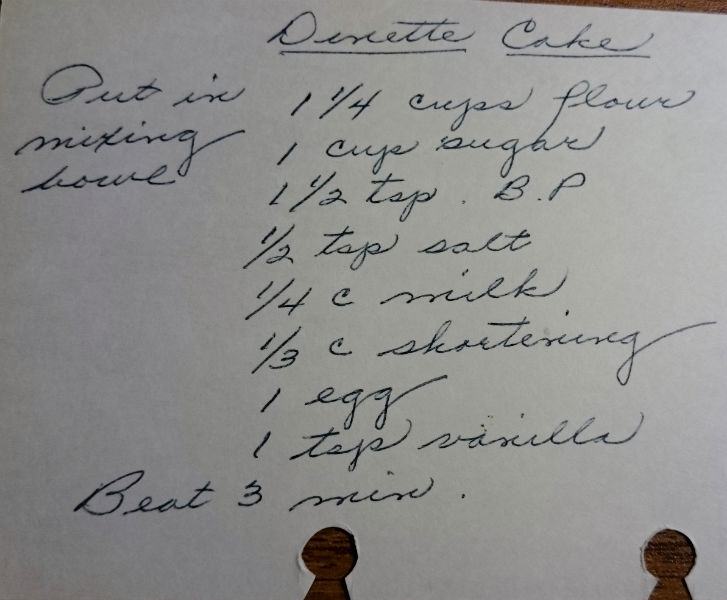 Dinette Cake
Put in mixing bowl
1 1/4 cups flour
1 cup sugar
1 1/2 tsp. B.P
1/2 tsp salt
1/4 c milk
1/3 c shortening
1 egg
1 tsp vanilla
Beat 3 min.